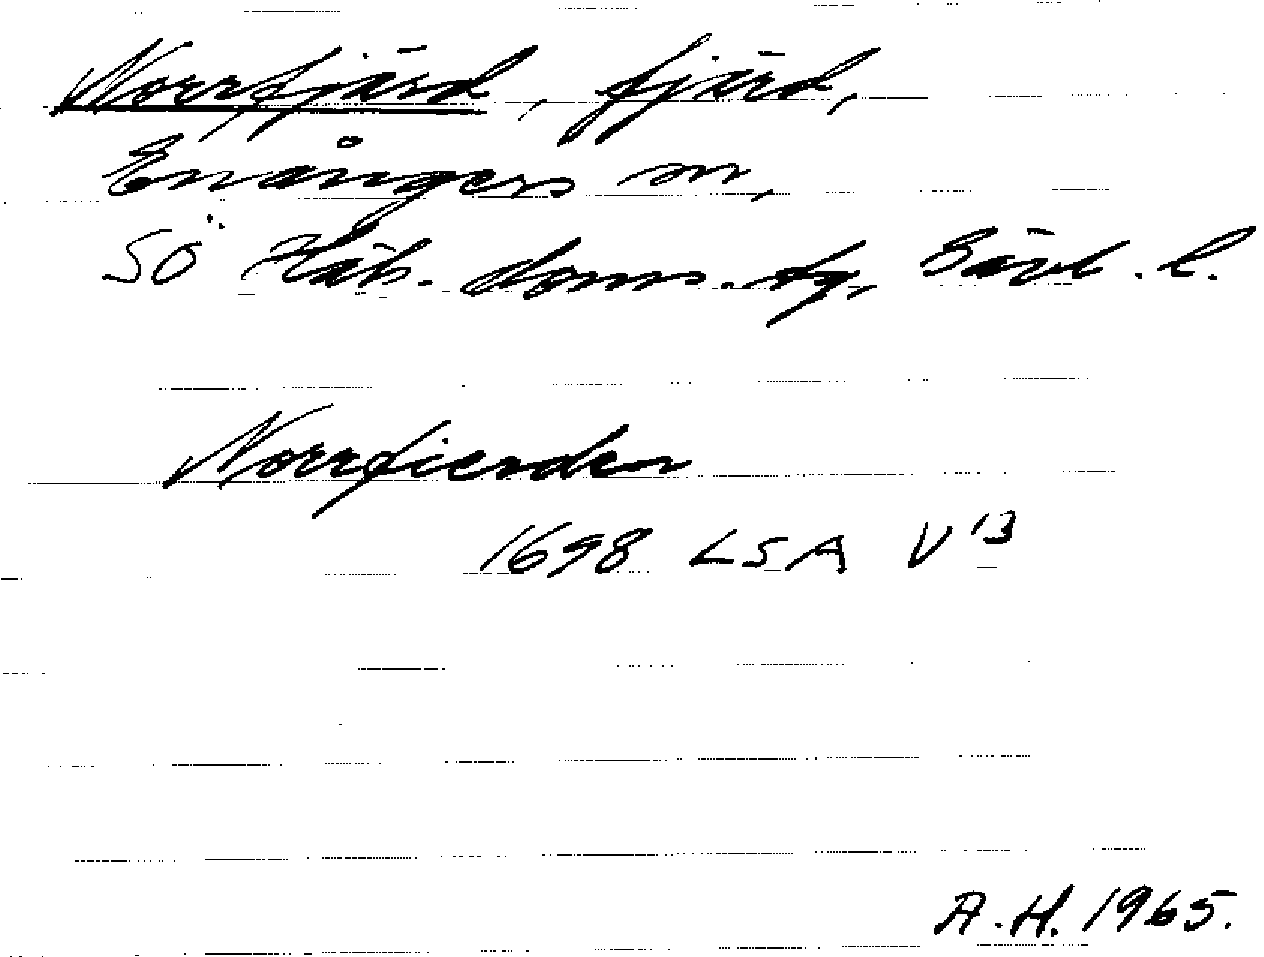 Norrfjärd, fjärd,
Enångers sn,
SÖ Häls. doms.sg, Gävl. l.
Norrfierden
1698 LSA V 13
A.H. 1965.